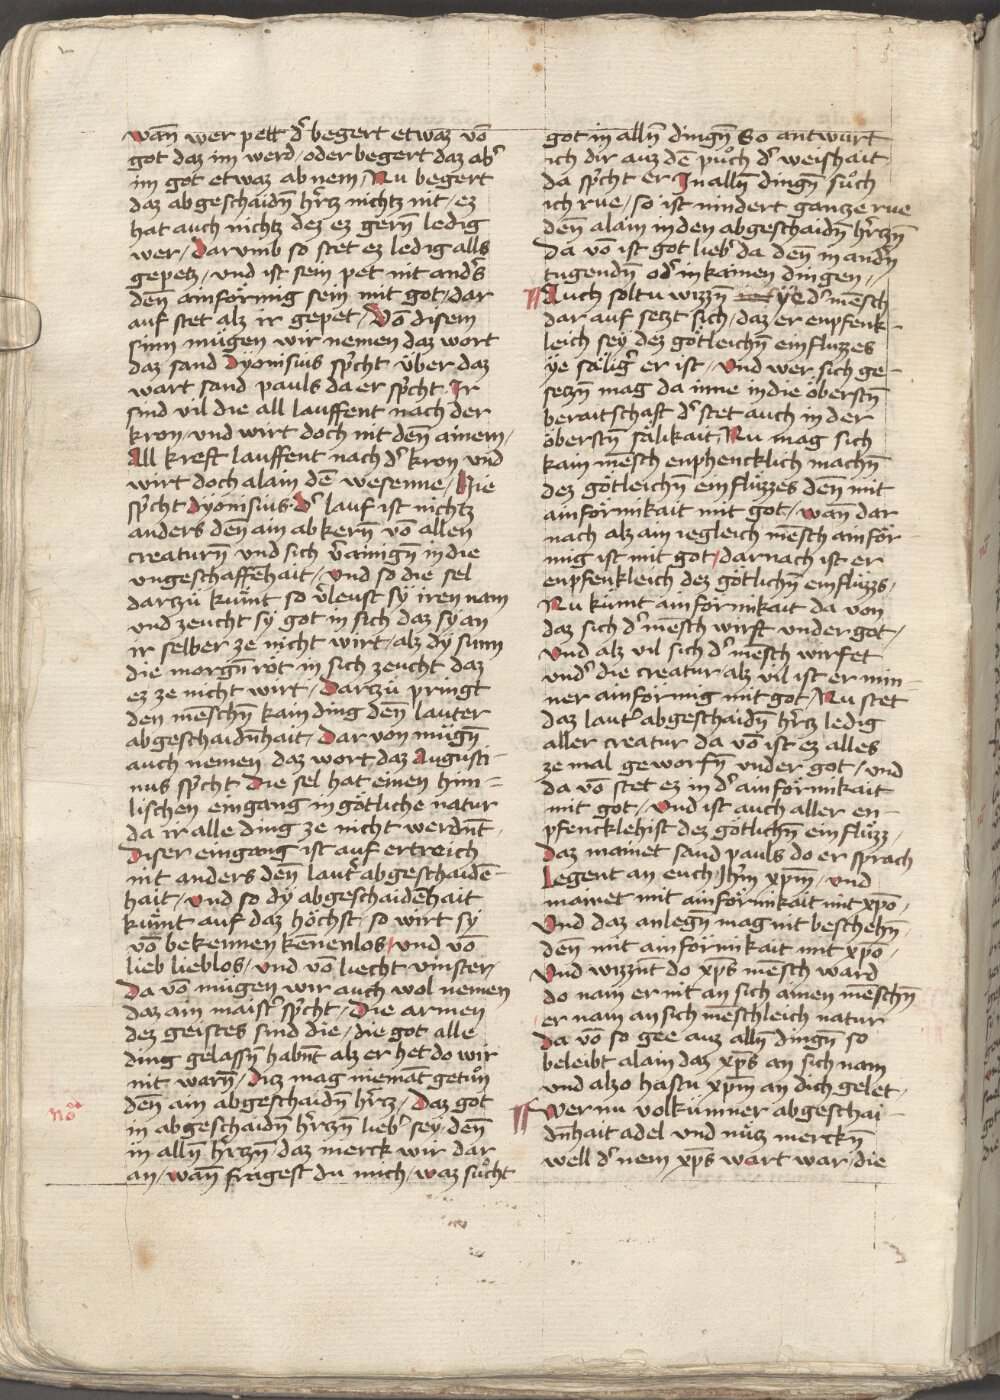 wān wer pett dˀ begert etwaz vō
got daz im werd / oder begert daz abˀ
im got etwaz ab nem / Nu begert
daz abgeschaidn̄ hˀrcz nichtz nit / ez
hat auch nichtz dez ez gern̄ ledig
wer / Darumb so stet ez ledig allˀ
gepetz / vnd ist sein pet nit andˀs
den̄ ainförmig sein mit got / dar
auf stet alz ir gepet / Vō disem
sinn mügen wir nemen daz wort
daz sand Dyonisius spˀcht über daz
wart sand pauls da er spˀcht / Ir
sind vil die all lauffent nach der
kron / vnd wirt doch nit den̄ ainem /
All kreft lauffent nach dˀ kron vnd
wirt doch alain dē wesenne / Hie
spˀcht dyonisius · Dˀ lauf ist nichtz
anders den̄ ain ab kern̄ vō allen
creaturn̄ vnd sich vˀainign̄ in die
vngeschaffēhait / Vnd so die sel
darzü kümt so vˀleust sy iren nam
vnd zeucht sy got in sich daz sy an
ir selber ze nicht wirt / alz dy sunn
die morgn̄ röt in sich zeucht daz
ez ze nicht wirt / Darzü pringt
den mēschn̄ kain ding den̄ lauter
abgeschaidn̄hait / Dar von mügn̄
auch nemen daz wort daz Augusti-
nus spˀcht Die sel hat einen him-
lischen eingang in götliche natur
da ir alle ding ze nicht werdn̄t ·
Diser eingang ist auf ertreich
nit anders den̄ lautˀ abgeschaidē-
hait / Vnd so dy abgeschaidēhait
kümt auf daz höchst / so wirt sy
vō bekennen kēnenlos / vnd vō
lieb lieblos / vnd vō liecht vinster /
Da vō mügen wir auch wol nemen
daz ain maistˀ spˀcht / Die armen
dez geistes sind die / die got alle
ding gelassn̄ habn̄t alz er het do wir
nit warn̄ / Diz mag niemāt getuͦn
den̄ ain abgeschaidn̄ hˀrcz / Daz got
in abgeschaidn̄ hˀrczn̄ liebˀ sey / den̄
in alln̄ hˀrczn̄ / daz merck wir dar
an / wān fragest du mich / waz suͦcht
noͣ
got in alln̄ dingn̄ So antwurt
ich dir auz dē puͦch dˀ weishait
da spˀcht er In alln̄ dingn̄ suͦch
ich rue / so ist nindert gancze rue
den̄ alain in den abgeschaidn̄ hˀrczn̄
da vō ist got liebˀ da den̄ in andˀn
tugendn̄ odˀ in kainen dingen /
Auch soltu wizzn̄ ye dˀ mēsch
dar auf seczt sich / daz er enpfenk-
leich sey dez götleichn̄ einfluzzes
ye säligˀ er ist / Vnd wer sich ge-
seczn̄ mag da inne in die öberstn̄
beraitschaft dˀ stet auch in der
öberstn̄ sälikait / Nu mag sich
kain mēsch enphencklich machn̄
dez götleichn̄ einflüzzes den̄ mit
ainförmikait mit got / wān dar
nach alz ain iegleich mēsch ainför-
mig ist mit got / dar nach ist er
enpfenkleich dez götlichn̄ einflüzzs /
Nu kümt ainförmikait da von
daz sich dˀ mēsch wirft vnder got /
Vnd alz vil sich dˀ mēsch wirfet
vndˀ die creatur / alz vil ist er min-
ner ainförmig mit got / Nu stet
daz lautˀ abgeschaidn̄ hˀrcz ledig
aller creatur da vō ist ez alles
ze mal geworfn̄ vnder got / vnd
da vō stet ez in dˀ ainförmikait
mit got / Vnd ist auch aller en-
pfencklehist dez götlichn̄ einflüzz /
Daz mainet sand pauls do er sprach
Legent an euch Jhm̄ xpm̄ / vnd
mainet mit ainförmikait mit xpō /
Vnd daz anlegn̄ mag nit beschehn̄
den̄ mit ainförmikait mit xpō ·
Vnd wizzn̄t do xp̄s mēsch ward
do nam er nit an sich ainen mēschn̄
er nam an sich mēschleich natur
Da vō so gee auz alln̄ dingn̄ so
beleibt alain daz xp̄s an sich nam
vnd also hastu xpm̄ an dich gelet ·
Wer nu volkümner abgeschai-
dn̄hait adel vnd nücz merckn̄
well dˀ nem xp̄s wart war / die